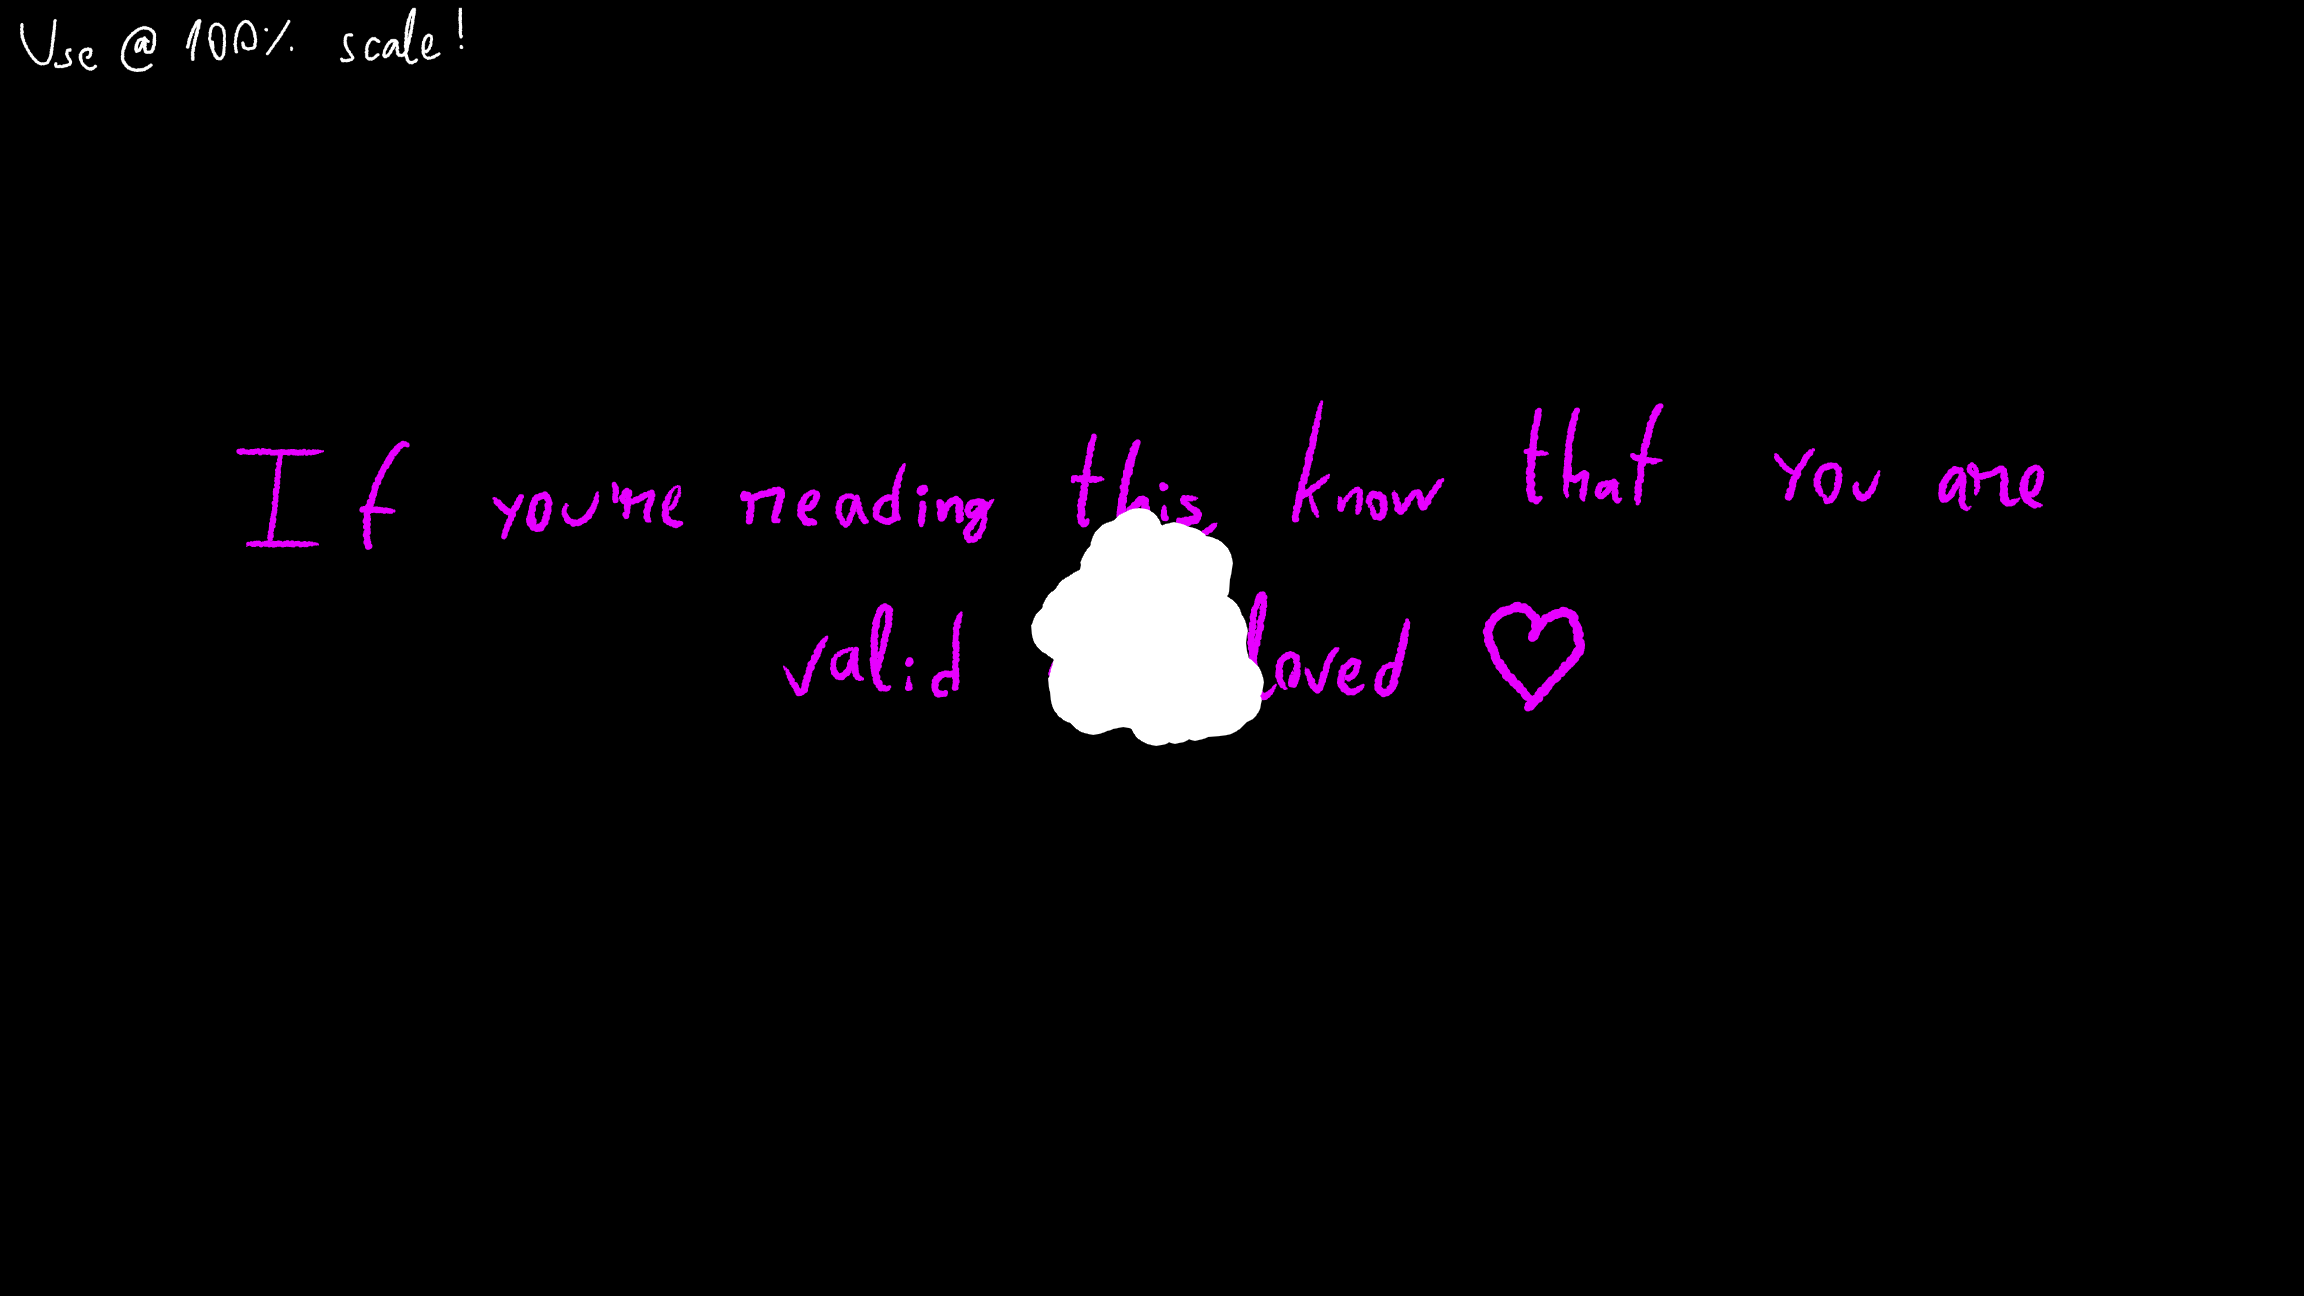 Use @ 100% scale!
If you're reading this, know that you are
valid loved ♡